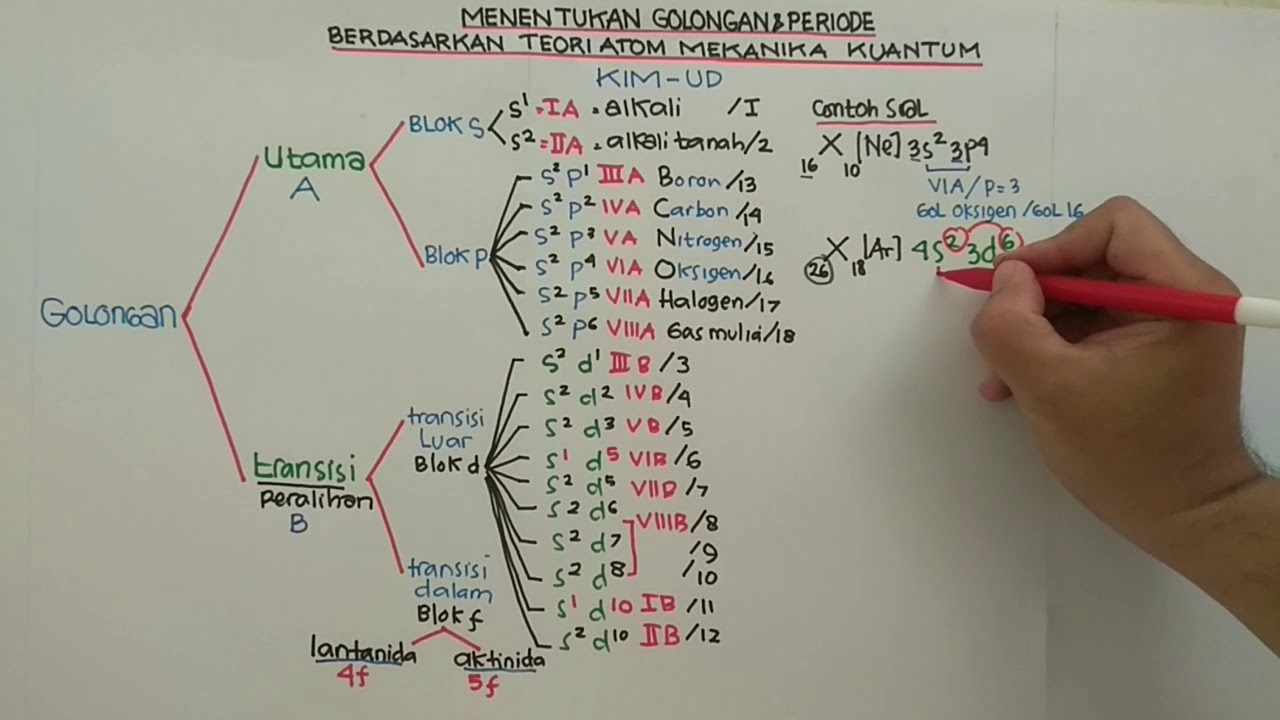 MENENTUKAN GOLONGAN & PERIODE
BERDASARKAN TEORI ATOM MEKANIKA KUANTUM
KIM-UD
Golongan
Utama
A
BLOK S
S¹ = IA = alkali /I
S² = IIA = alkali tanah/2
Blok p
S² P¹ IIIA Boron/13
S² P² IVA Carbon/14
S² P³ VA Nitrogen/15
S² P⁴ VIA Oksigen/16
S² P⁵ VIIA Halogen/17
S² P⁶ VIIIA Gas mulia/18
transisi
Peralihan
B
transisi
Luar
Blok d
S² d¹ III B /3
S² d² IVB/4
S² d³ VB/5
S¹ d⁵ VIB/6
S² d⁵ VIIB/7
S² d⁶ VIIIB/8
S² d⁷ /9
S² d⁸ /10
S¹ d¹⁰ IB /11
S² d¹⁰ IIB/12
transisi
dalam
Blok f
lantanida
4f
aktinida
5f
Contoh Soal
₁₆X ₁₀[Ne] 3s² 3p⁴
VIA/P=3
Gol Oksigen/Gol 16
₂₆X ₁₈[Ar] 4s² 3d⁶